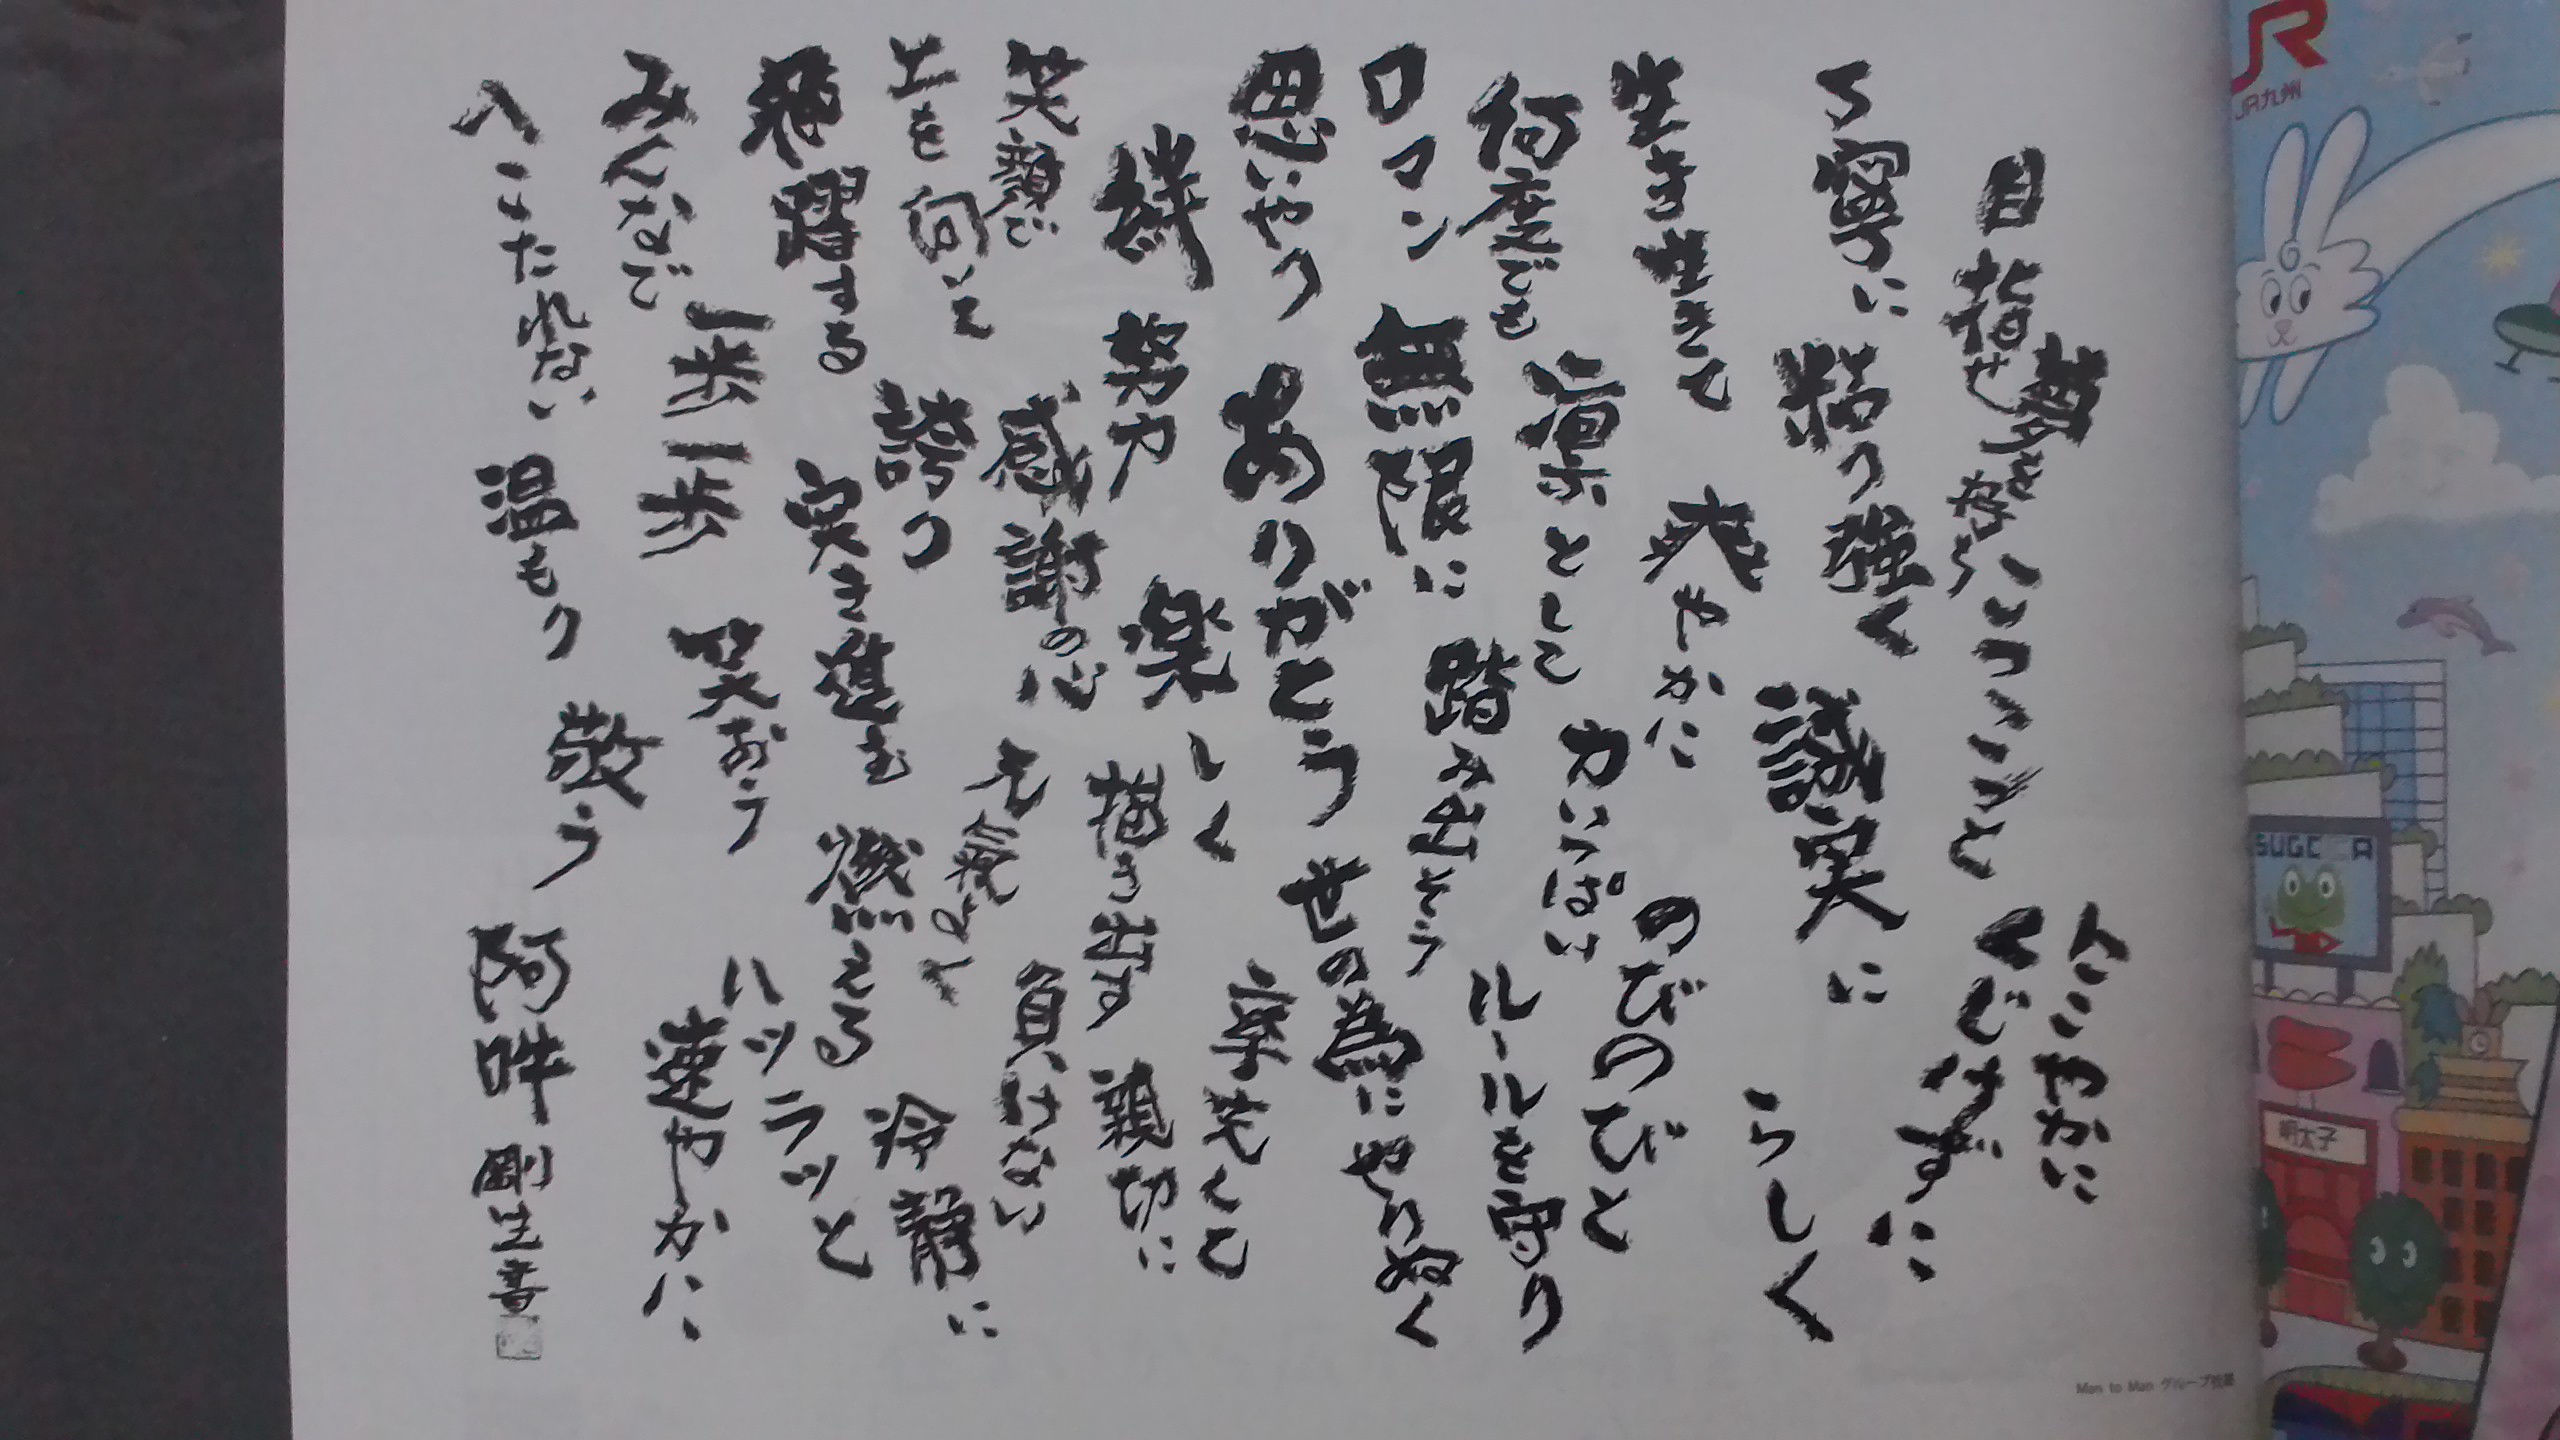 目指せ
夢を
コツコツと
にこやかに
くじけずに
丁寧に
粘り強く
誠実に
らしく
生き生きと
爽やかに
のびのびと
何度でも
凛として
力いっぱい
ルールを守り
ロマン
無限に
踏み出そう
世の為にやりぬく
思いやり
ありがとう
率先して
絆
努力
楽しく
描き出す
親切に
笑顔で
感謝の心
元気よく
負けない
上を向いて
誇り
突き進む
燃える
冷静に
飛躍する
一歩一歩
笑おう
ハツラツと
速やかに
みんなで
へこたれない
温もり
敬う
阿吽
剛生書
Man to Man グループ
JR
JR九州
明太子